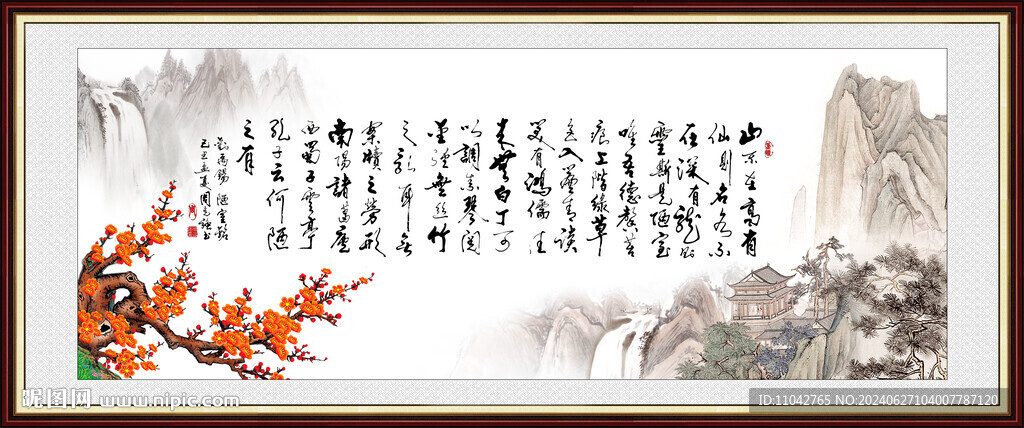 山不在高有
仙則名水不
在深有龍則
靈斯是陋室
唯吾德馨苔
痕上階綠草
色入簾青談
笑有鴻儒往
來無白丁可
以調素琴閱
金經無絲竹
之亂耳無
案牘之勞形
南陽諸葛廬
西蜀子雲亭
孔子云何陋
之有
劉禹錫陋室銘
己丑孟夏周書
昵图网 www.nipic.com
ID:11042765 NO:20240627104007787120